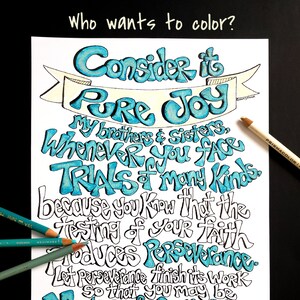 Who wants to color?
Consider it
PURE JOY
My brothers & Sisters,
Whenever you face
TRIALS of Many Kinds.
because you Know that the
Testing of your faith
Produces Perseverance.
Let perseverance finish its work
so that you may be